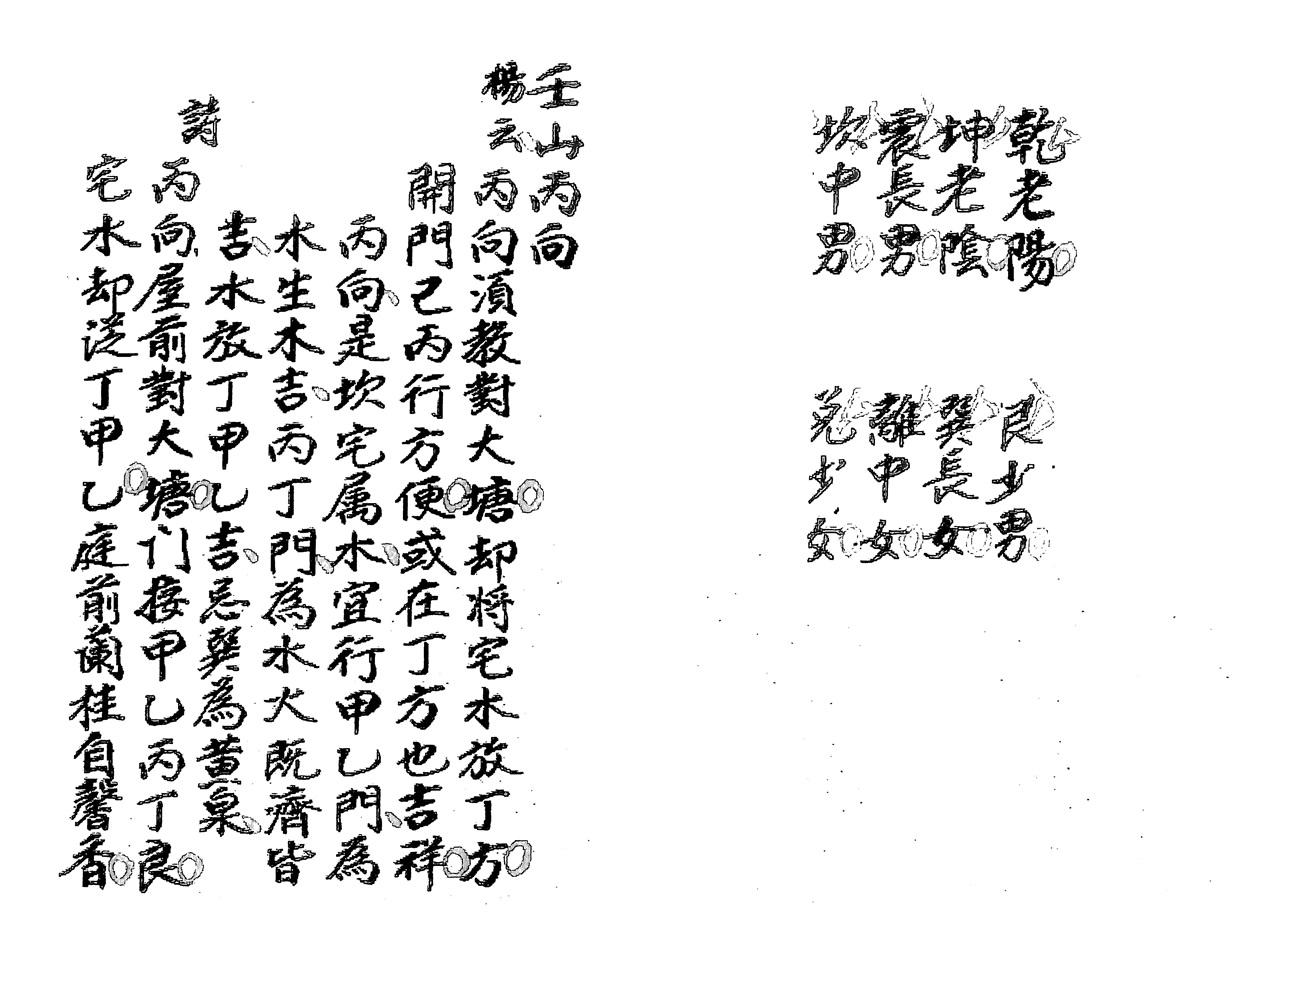 乾老陽
坤老陰
震長男
坎中男
艮少男
巽長女
離中女
兌少女
壬山丙向
楊云丙向須教對大塘却将宅水放丁方
開門己丙行方便或在丁方也吉祥
丙向是坎宅属水宜行甲乙門為
水生木吉丙丁門為水火既濟皆
吉水放丁甲乙吉忌巽為黄泉
詩
丙向屋前對大塘门接甲乙丙丁良
宅水却從丁甲乙庭前蘭桂自馨香